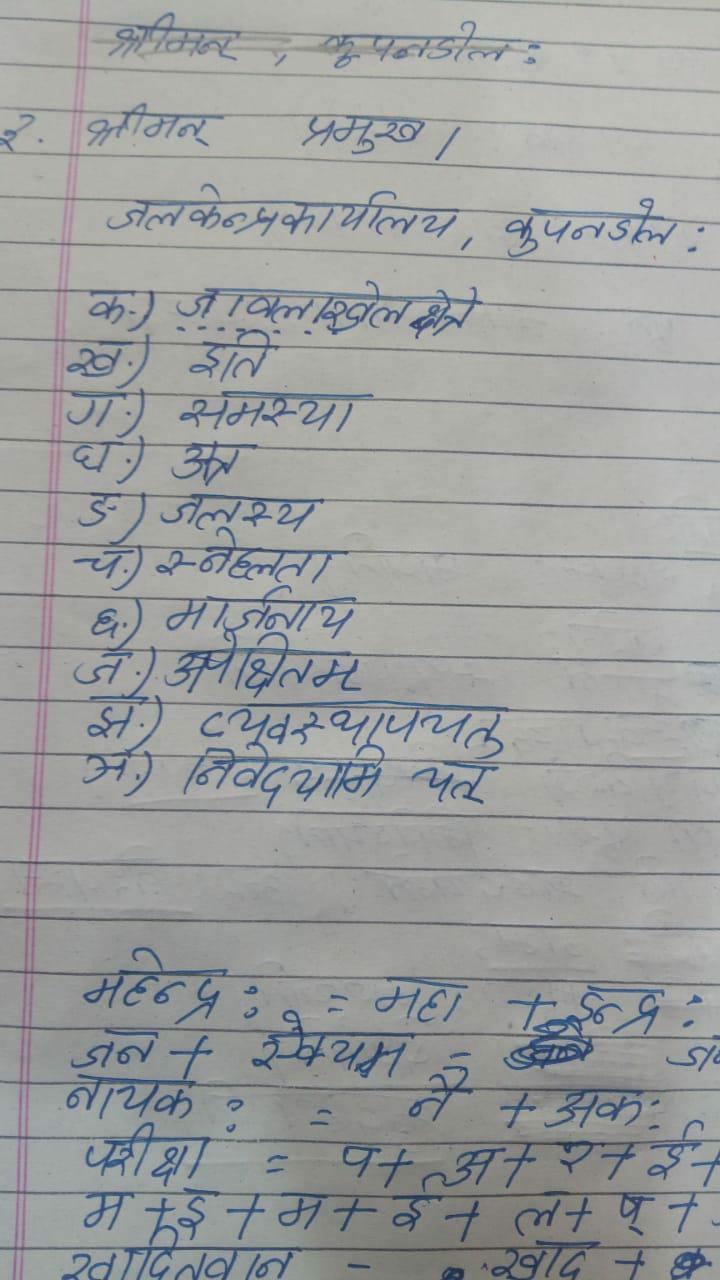 श्रीमन्, कूपनडोल:
२. श्रीमन् प्रमुख।
जलकेन्द्रकार्यालय, कुपनडोल:
क.) जावलाखेल क्षेत्रे
ख.) इति
ग.) समस्या
घ.) अत्र
ङ) जलस्य
च.) स्नेहलता
छ.) मार्जनाय
ज.) अपेक्षितम्
झ.) व्यवस्थापयतु
ञ.) निवेदयामि यत्
महेन्द्र: = महा + इन्द्र:
जन + ऐक्यम् =
नायक: = नै + अक:
परीक्षा = प + अ + र + ई +
म + इ + म + ई + ल + ष् +
खादितवान - खाद् +